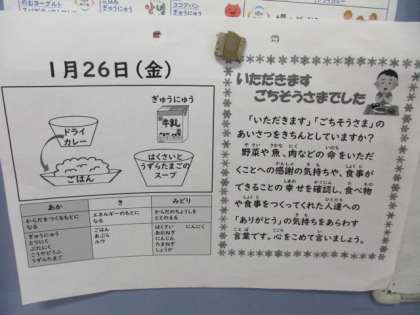 のむヨーグルト
ぎゅうにゅう
ココアパン
ぎゅうにゅう
1月26日(金)
ぎゅうにゅう
牛乳
ドライ
カレー
ごはん
はくさいと
うずらたまごの
スープ
あか
き
みどり
からだをつくるもとに
なる
エネルギーのもとに
なる
からだのちょうしを
ととのえる
ぎゅうにゅう
とりにく
ぶたにく
こうやどうふ
うずらたまご
ごはん
あぶら
ルウ
はくさい にんにく
あおねぎ
にんじん
たまねぎ
しょうが
いただきます
ごちそうさまでした
「いただきます」「ごちそうさま」の
あいさつをきちんとしていますか?
野菜や魚、肉などの命をいただ
くことへの感謝の気持ちや、食事が
できることの幸せを確認し、食べ物
や食事をつくってくれた人達への
「ありがとう」の気持ちをあらわす
言葉です。心をこめて言いましょう。